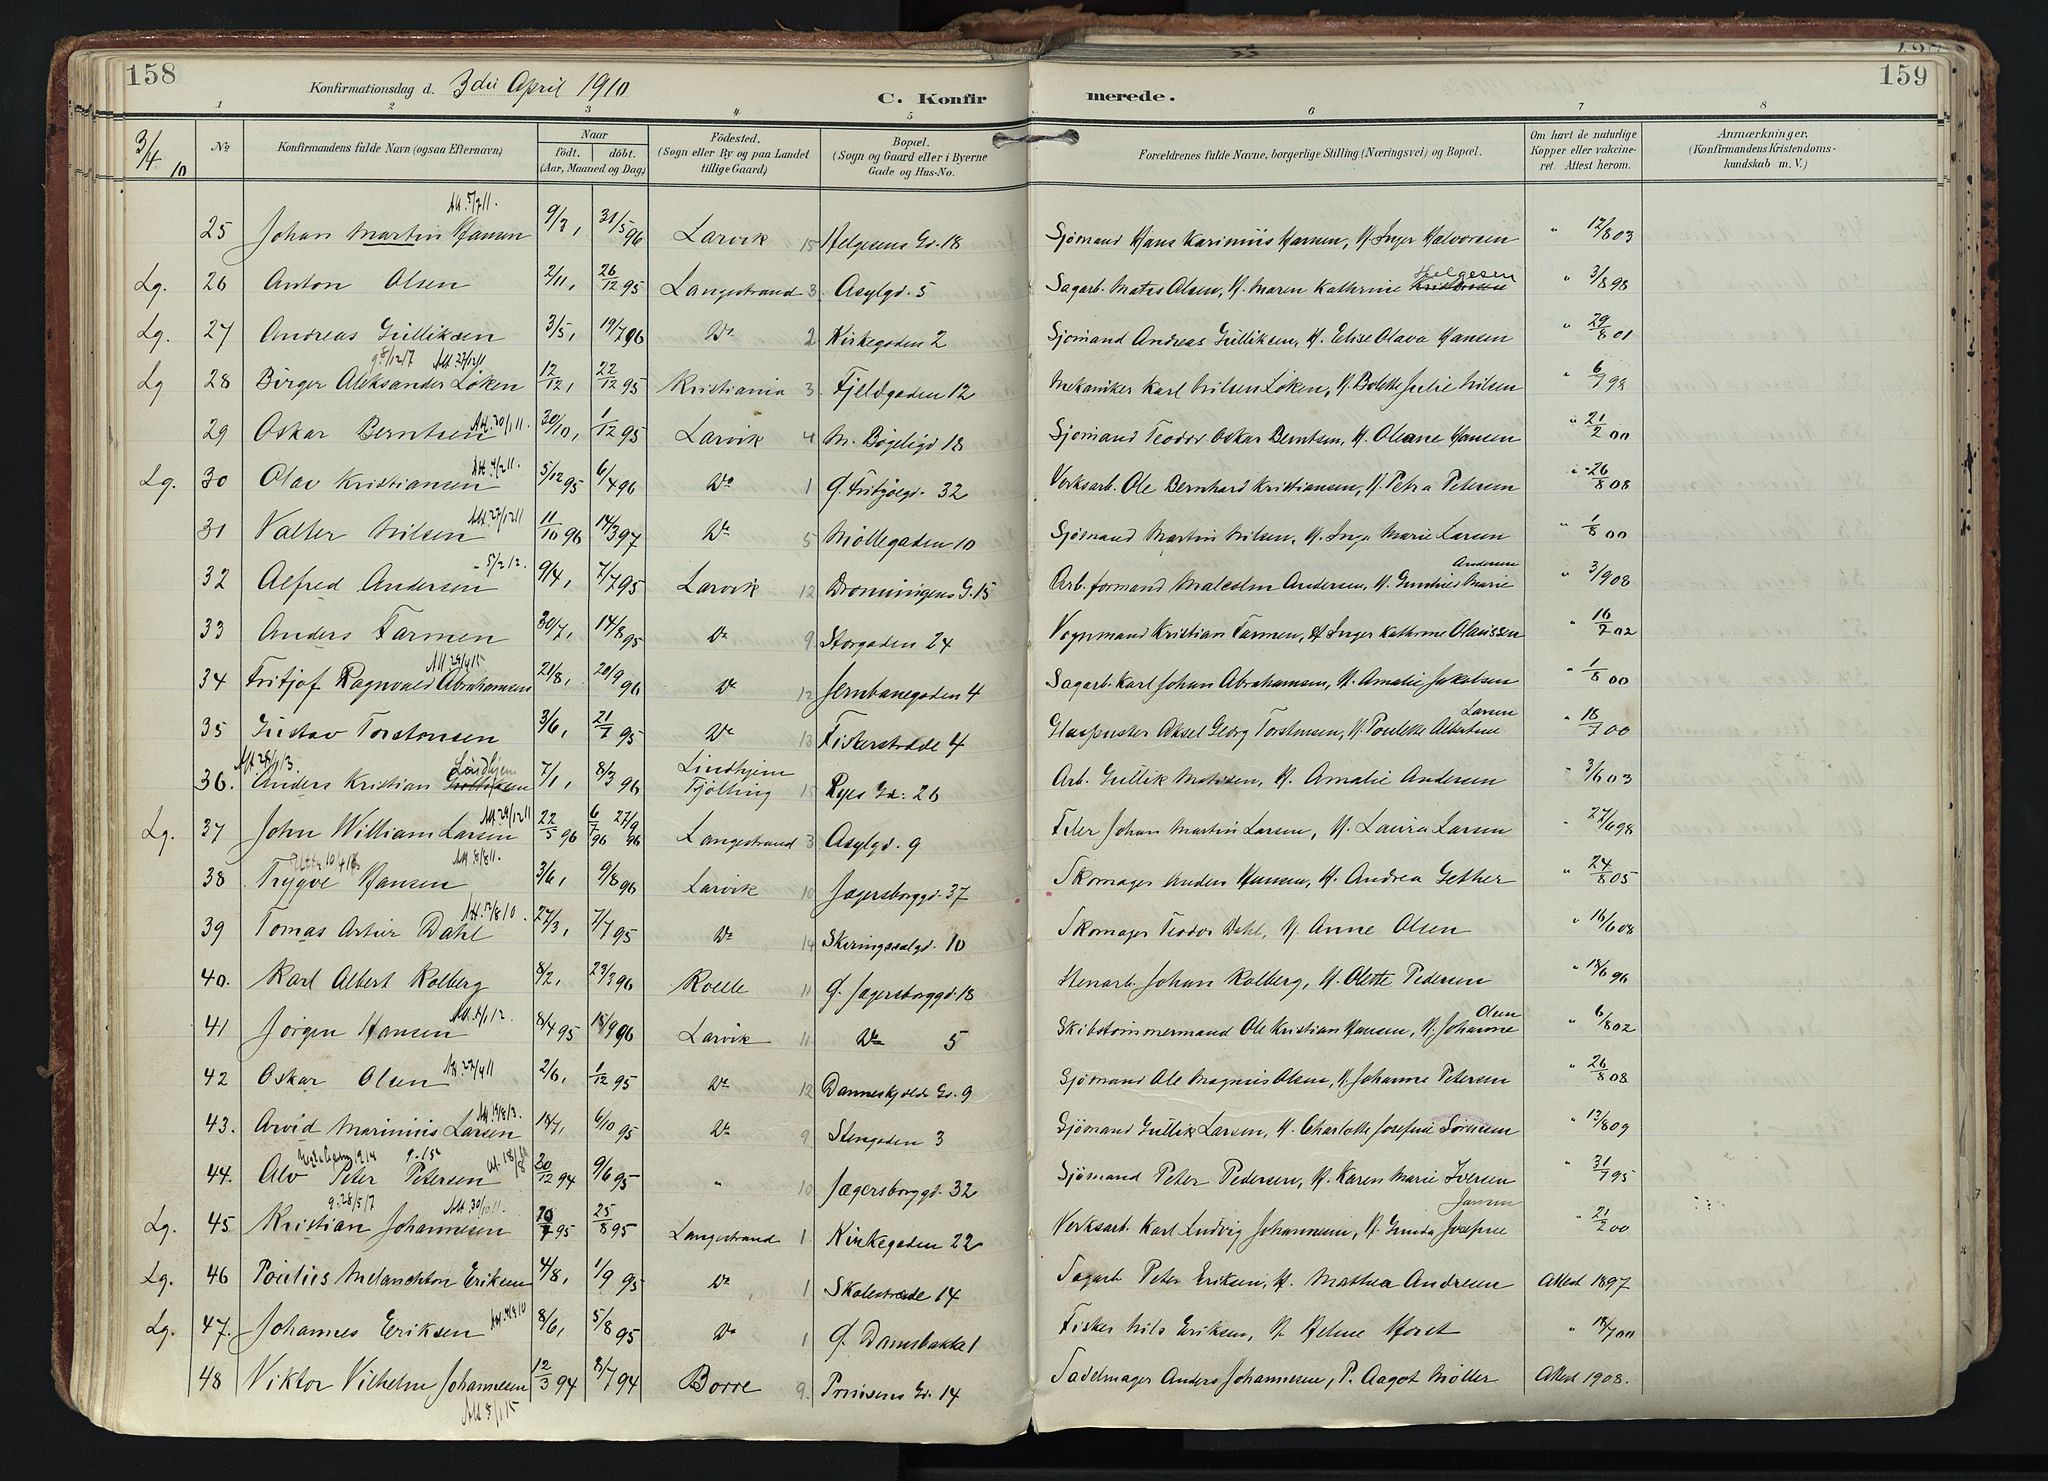 158
Konfirmationsdag d. 3die April 1910
C. Konfir
merede.
159
1 2 3 4 5 6 7 8
3/4 10
No
Konfirmandens fulde Navn (ogsaa Efternavn)
Naar
födt. döbt.
(Aar, Maaned og Dag)
Födested.
(Sogn eller By og paa Landet
tillige Gaard)
Bopæl.
(Sogn og Gaard eller i Byerne
Gade og Hus-No.
Forældrenes fulde Navne, borgerlige Stilling (Næringsvei) og Bopæl.
Om havt de naturlige
Kopper eller vakcine-
ret. Attest herom.
Anmærkninger.
(Konfirmandens Kristendoms-
kundskab m. V.)
25 Johan Martin Hansen 31/5 96 Larvik 15 Helgesens Gd. 18 Sjømand Hans Karinius Hansen, H. Inger Halvorsen " 12/8 03
Lg. 26 Anton Olsen 2/11, 26/12 95 Langestrand 3 Asylgd. 5 Sagarb. Mats Olsen, H. Maren Kathrine Helgesen " 3/8 98
Lg. 27 Andreas Gulliksen 3/5, 19/7 96 Do 2 Kirkegaden 2 Sjømand Andreas Gulliksen, H. Elise Olava Hansen " 29/8 01
Lg 28 Birger Aleksander Løken 12/12, 22/12 95 Kristiania 3 Fjeldgaden 12 Mekaniker Karl Nilsen Løken, H. Bolette Julie Nilsen " 6/7 98
29 Oskar Berntsen 30/10, 1/12 95 Larvik 4 N. Bøgeligd 18 Sjømand Teodor Oskar Berntsen, H. Oleane Hansen " 21/2 00
Lg. 30 Olav Kristiansen 5/12 95 6/4 96 Do 1 Ø. Fritjofgd. 32 Verksarb. Ole Bernhard Kristiansen, H. Petra Petersen " 26/8 08
31 Valter Nilsen 11/10 96 14/3 97 Do 5 Møllegaden 10 Sjømand Martin Nilsen, H. Inga Marie Larsen " 1/8 00
32 Alfred Andersen 9/4, 7/7 95 Larvik 12 Dronningens G. 15 Arb.formand Malcolm Andersen, H. Marie Andersen " 3/9 08
33 Anders Farmen 30/7, 14/8 95 Do 9 Storgaden 24 Vognmand Kristian Farmen, H. Inger Kathrine Olaussen " 16/7 02
34 Fritjof Ragnvald Abrahamsen 21/8, 20/9 96 Do 12 Jernbanegaden 4 Sagarb. Karl Johan Abrahamsen, H. Amalie Jakobsen " 1/8 00
35 Gustav Torstensen 3/6, 21/7 95 Do 13 Fiskerstræde 4 Glaspuster Aksel Georg Torstensen, H. Paulette Albertine Larsen " 18/7 00
36. Anders Kristian Lindhjem 7/1, 8/3 96 Lindhjem Tjølling 15 Ryes Gd. 26 Arb. Gullik Matisen, H. Amalie Andersen " 3/6 03
Lg. 37 John William Larsen 22/5 96 6/7 96 27/9 96 Langestrand 3 Asylgd. 9 Filer Johan Martin Larsen, H. Laura Larsen " 27/6 98
38 Trygve Hansen 3/6, 9/8 96 Larvik 10 Jægersborggd. 37 Skomager Anders Hansen, H. Andrea Gether " 24/8 05
39 Tomas Artur Dahl 27/3, 7/7 95 Do 14 Skiringssalgd. 10 Skomager Teodor Dahl, H. Anne Olsen " 16/6 08
40. Karl Albert Kolberg 8/2, 23/3 96 11 Ø. Jægersborggd. 18 Stenarb. Johan Kolberg, H. Olette Pedersen " 18/6 96
41 Jørgen Hansen 8/4 95 18/9 96 Larvik 11 Do 5 Skibstømmermand Ole Kristian Hansen, H. Johanne Olsen " 6/8 02
42 Oskar Olsen 2/6, 1/12 95 Do 12 Danneskjolds Gd. 9 Sjømand Ole Magnus Olsen, H. Johanne Petersen " 26/8 08
43. Arvid Marinius Larsen 18/7, 6/10 95 Do 9 Stengaden 3 Sjømand Gullik Larsen, H. Charlotte Josefine Sørensen " 13/8 09
44. Alv Peter Petersen 20/12 94 9/6 95 " 10 Jægersborggd. 32 Sjømand Peter Pedersen, H. Karen Marie Iversen " 31/7 95
Lg. 45. Kristian Johannesen 20/7 95 25/8 95 Langestrand 1 Kirkegaden 22 Verksarb. Karl Ludvig Johannesen, H. Gunda Josefine Jansen " 21/2 00
Lg. 46 Paulus Melanchton Eriksen 4/8, 1/9 95 Do 1 Skolestræde 14 Sagarb Peter Eriksen, H. Mathea Andresen Attest 1897
Lg. 47. Johannes Eriksen 8/6, 5/8 95 Do 1 Ø. Damsbakke 1 Fisker Nils Eriksen, H. Helene Horst " 18/7 00
48 Viktor Vilhelm Johannesen 12/3 94 8/7 94 Borre 9. Gd. 14 Sadelmager Anders Johannesen, P. Aagot Møller Attest 1908.